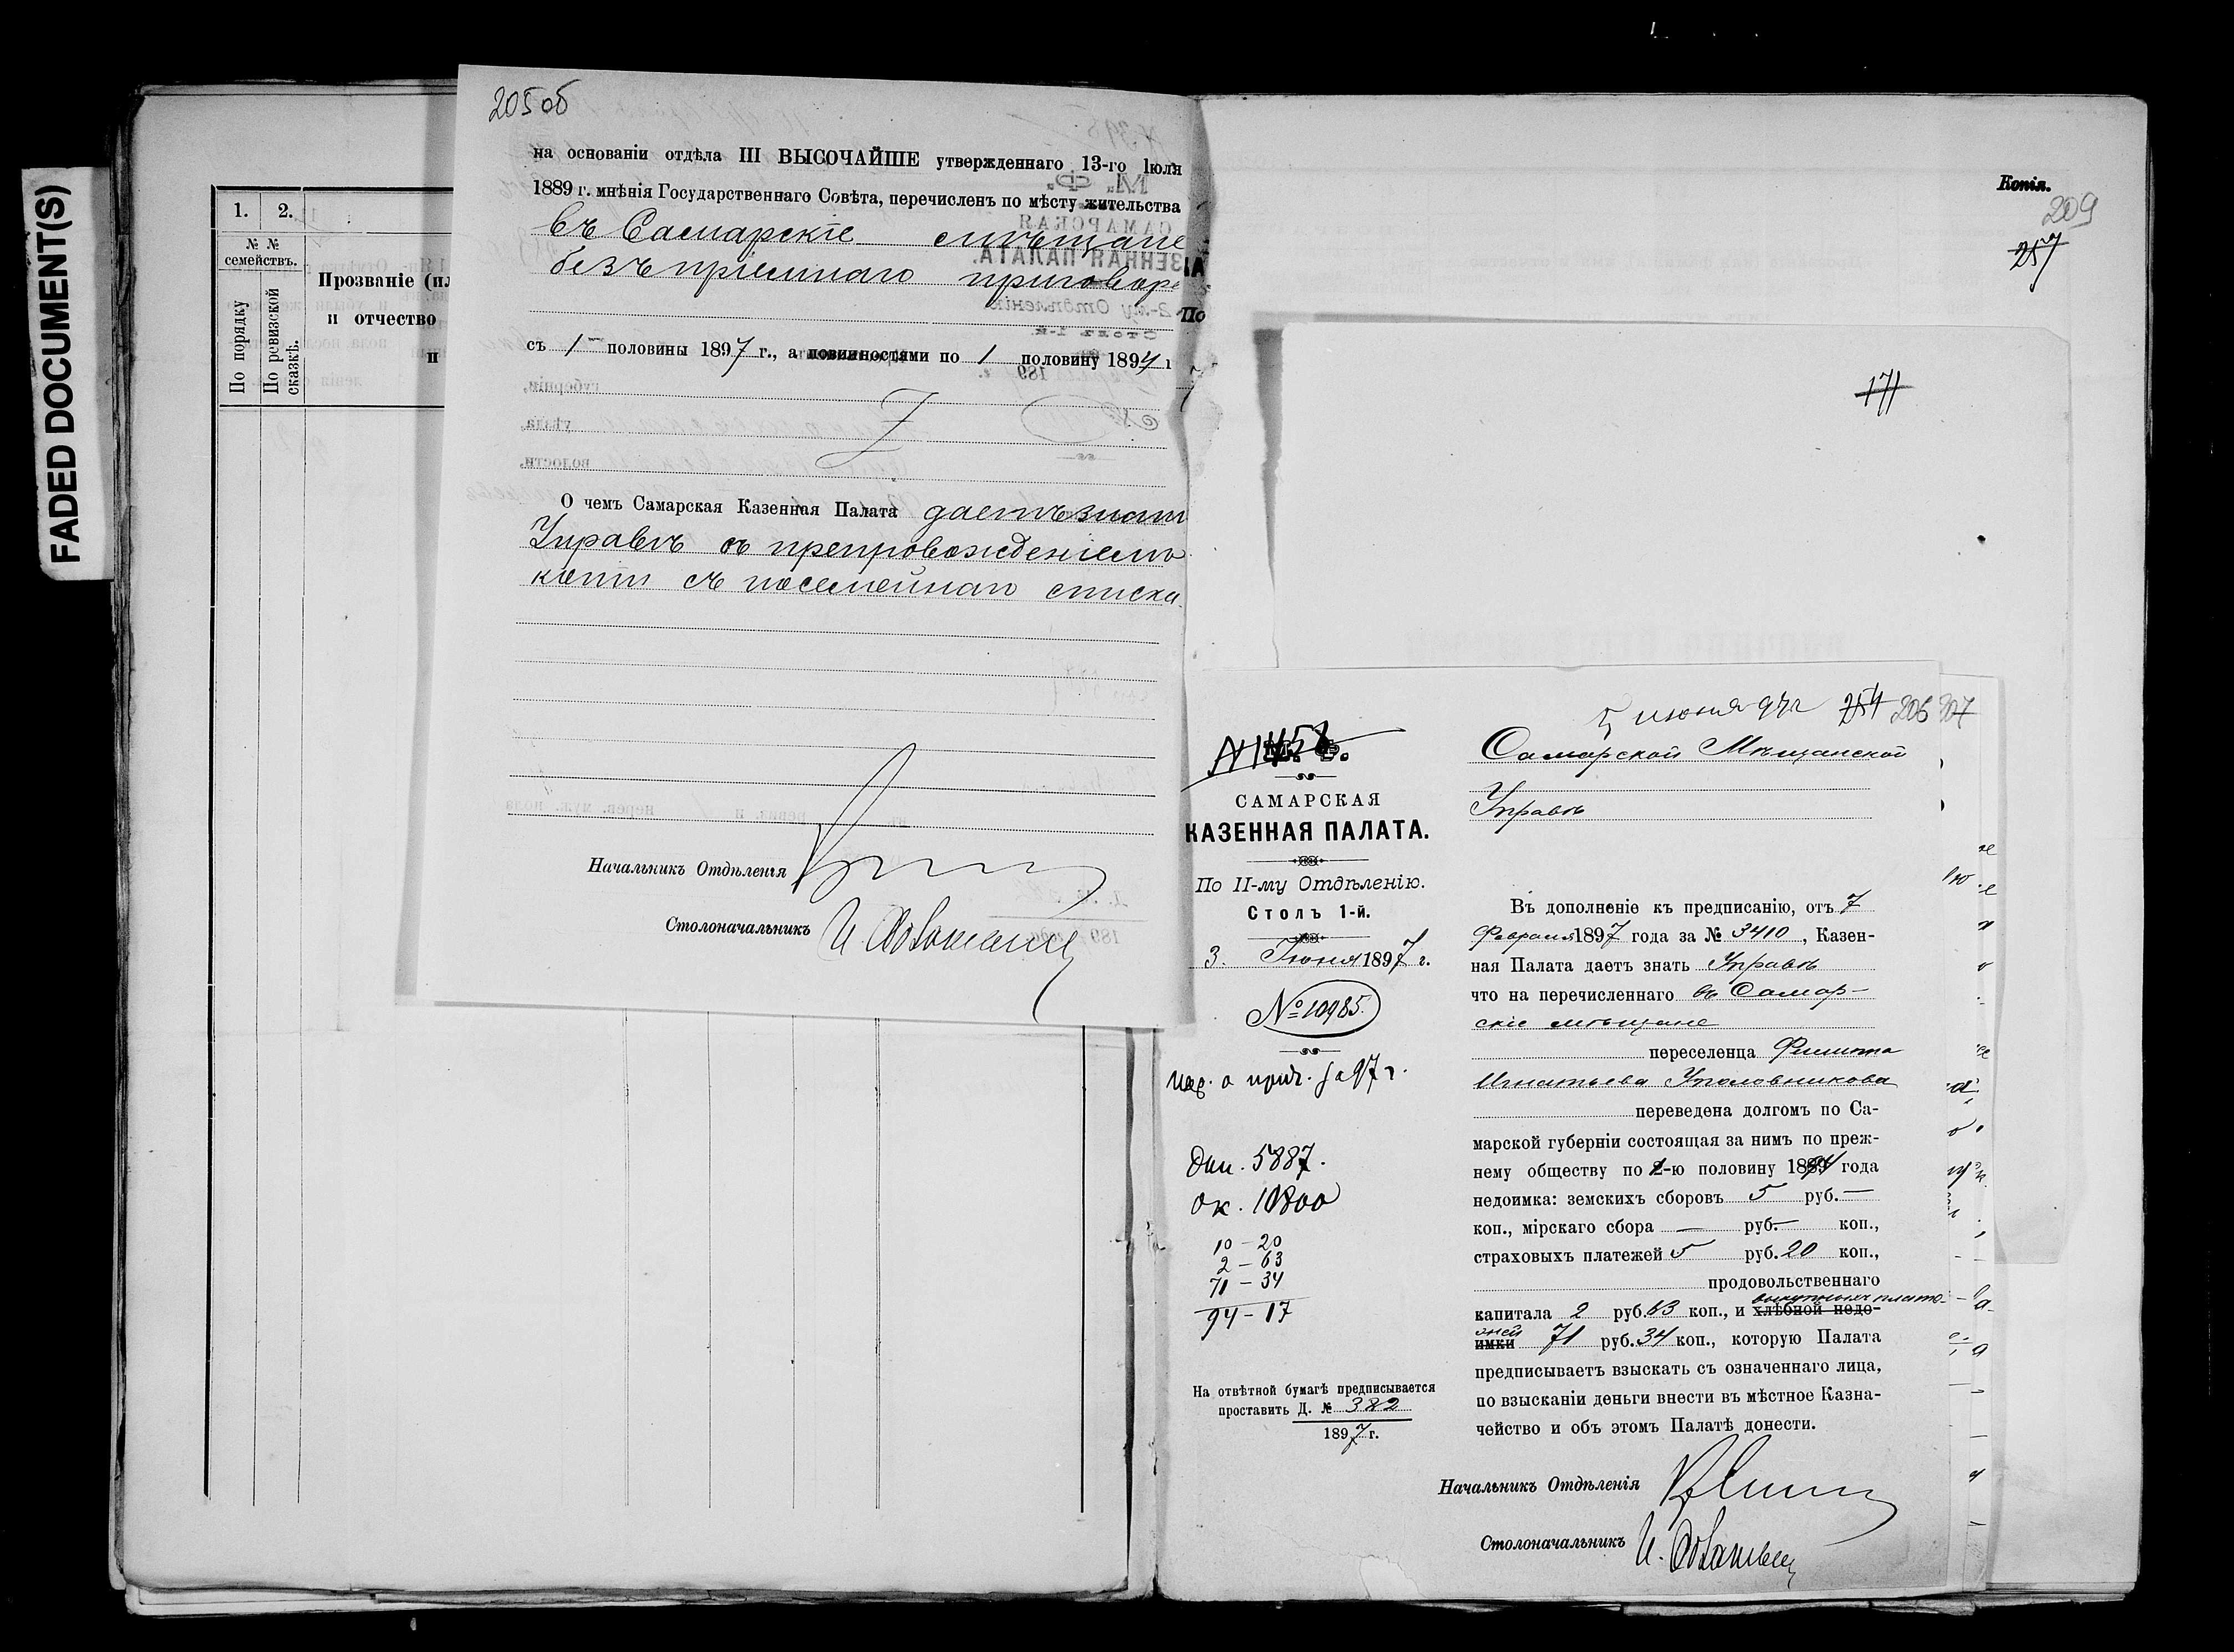 FADED DOCUMENT(S)
1. 2.
№ №
семействъ.
По порядку
По ревизской
сказкѣ.
Прозваніе (и
и отчество
и
205об
на основаніи отдѣла III ВЫСОЧАЙШЕ утвержденнаго 13-го Іюля
1889 г. мнѣнія Государственнаго Совѣта, перечисленъ по мѣсту жительства
въ Самарскіе мѣщане
безъ пріемнаго приговор
съ 1 половины 1897 г., а повинностями по 1 половину 1897 г
О чемъ Самарская Казенная Палата даетъ знать
Управѣ съ препровожденіемъ
копіи съ посемейнаго списка.
Начальникъ Отдѣленія
Столоначальникъ
Копія.
209
257
171
По
5 июня 97г 254 206 207
№ 1458
М. Ф.
САМАРСКАЯ
КАЗЕННАЯ ПАЛАТА.
По II-му Отдѣленію.
Столъ 1-й.
3. Іюня 1897 г.
№ 10985.
Дни. 5887.
Ок. 10800
10 – 20
2 – 63
71 – 34
94 – 17
На отвѣтной бумагѣ предписывается
проставить Д. № 382
1897 г.
Самарской Мѣщанской
Управѣ
Въ дополненіе къ предписанію, отъ 7
Февраля 1897 года за № 3410, Казен-
ная Палата даетъ знать Управѣ
что на перечисленнаго въ Самар-
скіе мѣщане
переселенца Филиппа
Игнатьева Уполовникова
переведена долгомъ по Са-
марской губерніи состоящая за нимъ по преж-
нему обществу по -ю половину года
недоимка: земскихъ сборовъ 5 руб. —
коп., мірскаго сбора — руб. — коп.,
страховыхъ платежей 5 руб. 20 коп.,
продовольственнаго
выкупныхъ плате-
капитала 2 руб. 63 коп., и хлѣбной недо-
жей
имки 71 руб. 34 коп., которую Палата
предписываетъ взыскать съ означеннаго лица,
по взысканіи деньги внести въ мѣстное Казна-
чейство и объ этомъ Палатѣ донести.
Начальникъ Отдѣленія
Столоначальникъ